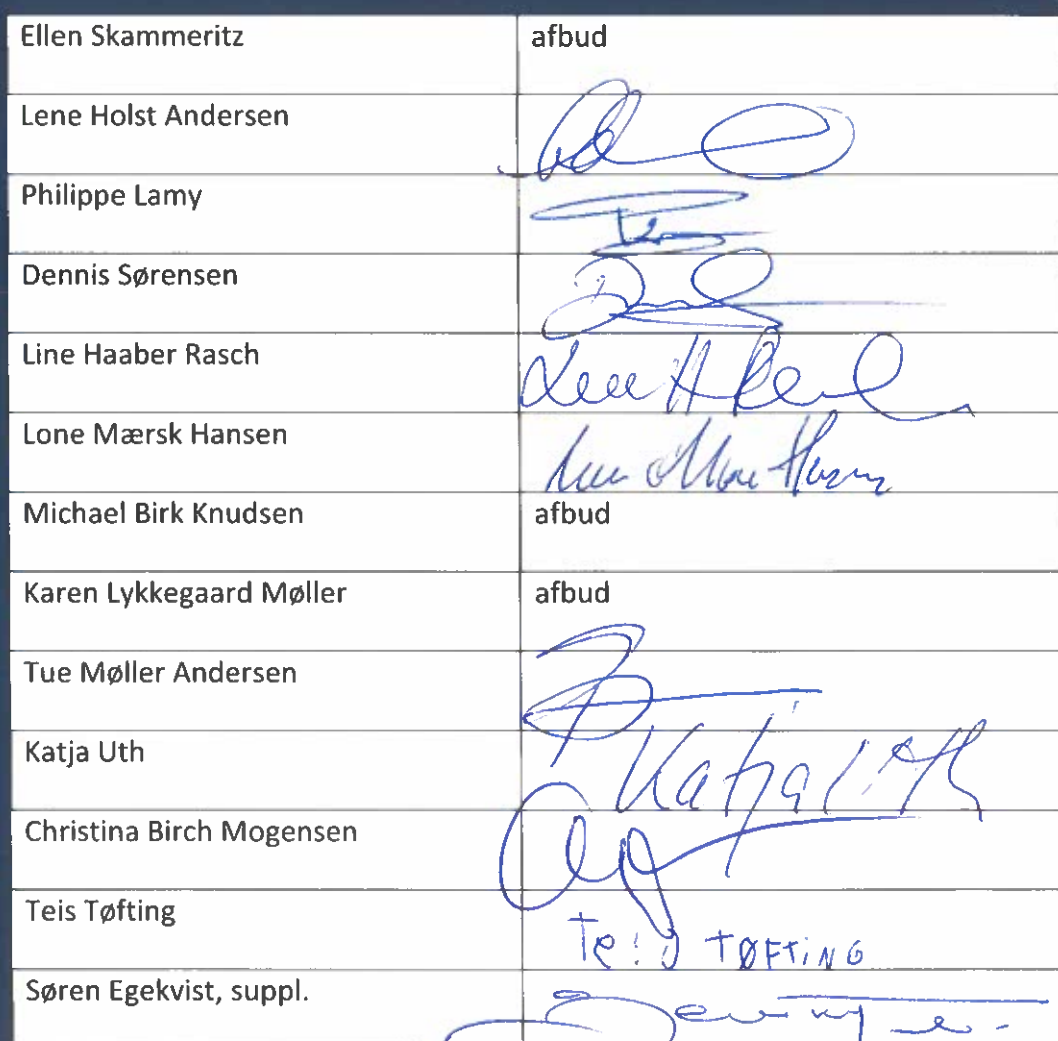 Ellen Skammeritz afbud
Lene Holst Andersen
Philippe Lamy
Dennis Sørensen
Line Haaber Rasch
Lone Mærsk Hansen
Michael Birk Knudsen afbud
Karen Lykkegaard Møller afbud
Tue Møller Andersen
Katja Uth Katja Uth
Christina Birch Mogensen
Teis Tøfting Teis TØFTING
Søren Egekvist, suppl.